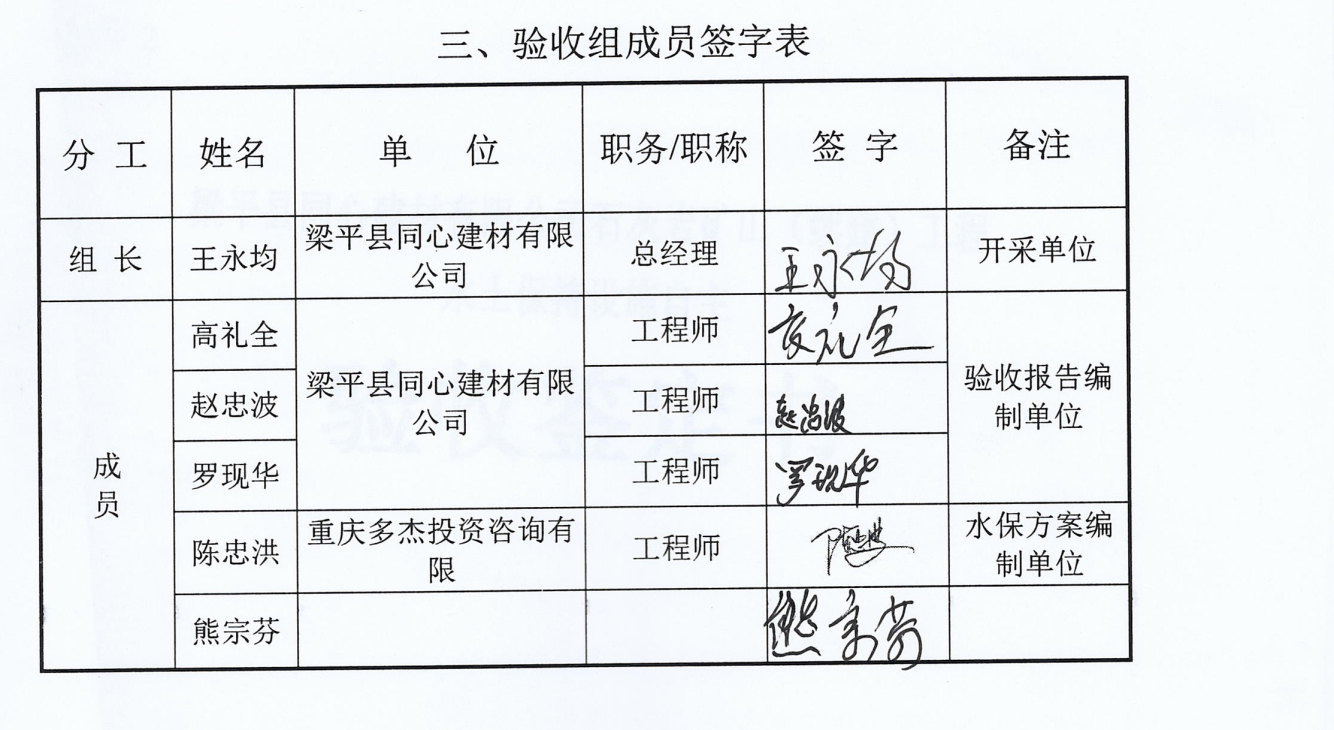 三、验收组成员签字表
分 工 姓名 单 位 职务/职称 签 字 备注
组 长 王永均 梁平县同心建材有限
公司 总经理 王永均 开采单位
成
员
高礼全 梁平县同心建材有限
公司 工程师 高礼全 验收报告编
制单位
赵忠波 工程师 赵忠波
罗现华 工程师 罗现华
陈忠洪 重庆多杰投资咨询有
限 工程师 水保方案编
制单位
熊宗芬 熊宗芬